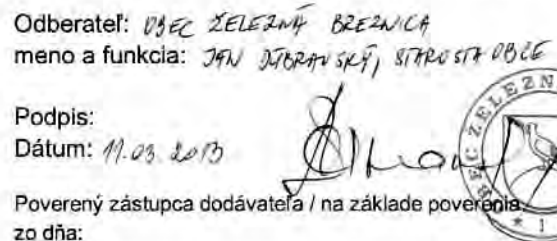 Odberateľ: OBEC ŽELEZNÁ BREZNICA
meno a funkcia: JÁN DÚBRAVSKÝ, STAROSTA OBCE
Podpis:
Dátum: 11.03.2013
Poverený zástupca dodávateľa / na základe poverenia
zo dňa:
OBEC ŽELEZN
* 1